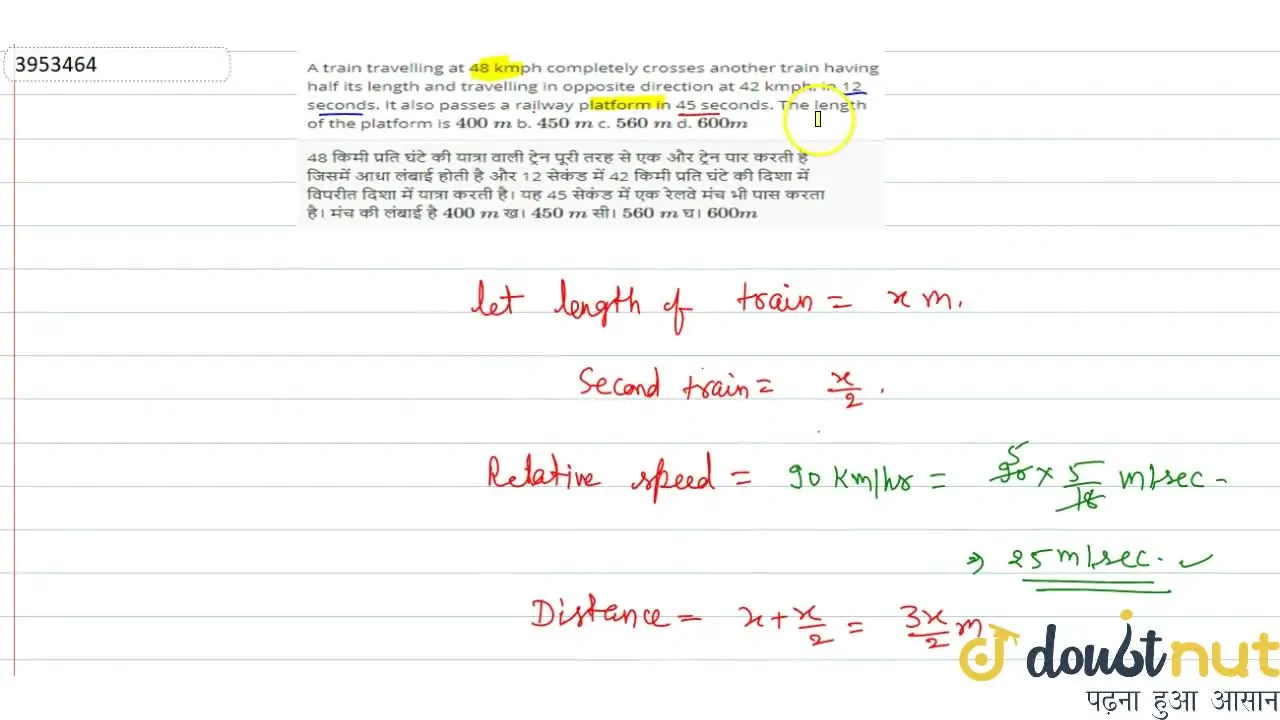 3953464
A train travelling at 48 kmph completely crosses another train having
half its length and travelling in opposite direction at 42 kmph, in 12
seconds. It also passes a railway platform in 45 seconds. The length
of the platform is 400 m b. 450 m c. 560 m d. 600m
48 किमी प्रति घंटे की यात्रा वाली ट्रेन पूरी तरह से एक और ट्रेन पार करती है
जिसमें आधा लंबाई होती है और 12 सेकंड में 42 किमी प्रति घंटे की दिशा में
विपरीत दिशा में यात्रा करती है। यह 45 सेकंड में एक रेलवे मंच भी पास करता
है। मंच की लंबाई है 400 m ख। 450 m सी। 560 m घ। 600m
let length of train = x m.
Second train = x/2 .
Relative speed = 90 Km/hr = 5 90 × 5/18 m/sec -
⇒ 25 m/sec. ✓
Distance = x + x/2 = 3x/2 m
doubtnut
पढ़ना हुआ आसान